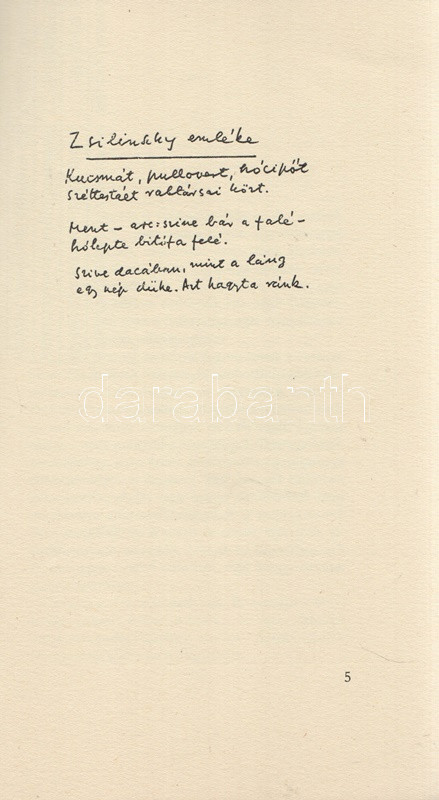 Zsilinszky emléke
Kucsmát, pullovert, hócipőt
széttestált rabtársai közt.
Ment – arc:szine bár a falé –
hólepte bitófa felé.
Szive dacában, mint a láng
egy nép dühe. Azt hagyta ránk.
darabanth
5